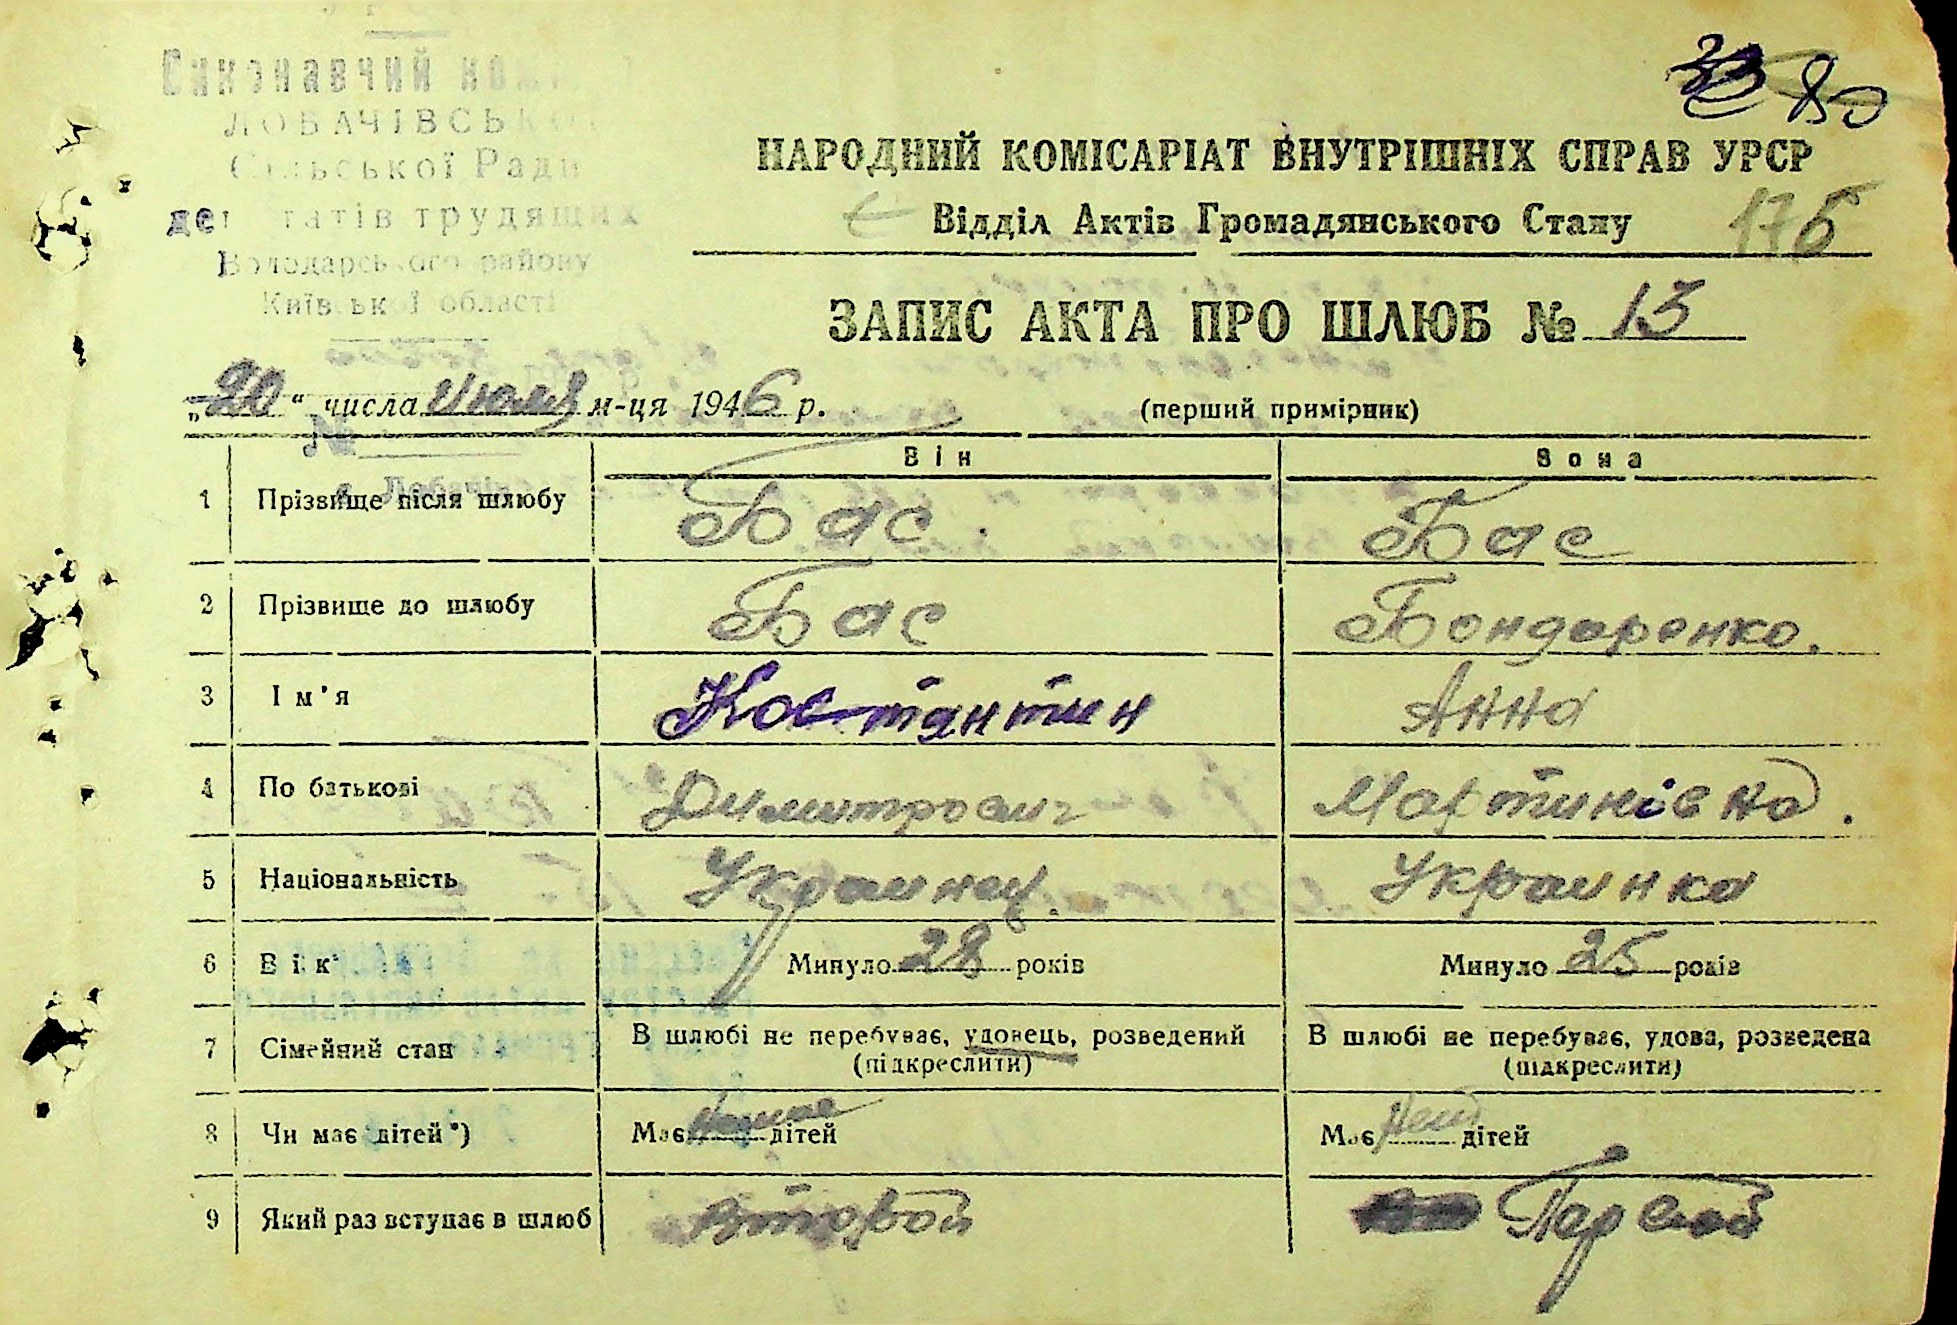 Виконавчий
ЛОБАЧІВСЬКОЇ
Сільської Ради
депутатів трудящих
Володарського району
Київської області
80
НАРОДНИЙ КОМІСАРІАТ ВНУТРІШНІХ СПРАВ УРСР
Відділ Актів Громадянського Стану 176
ЗАПИС АКТА ПРО ШЛЮБ № 13
„20“ числа Июля м-ця 1946 р. (перший примірник)
№
Він Вона
1 Прізвище після шлюбу Бас Бас
2 Прізвище до шлюбу Бас Бондаренко.
3 Ім'я Костянтин Анна
4 По батькові Димитрович Мартинівна.
5 Національність Украинец. Украинка
6 Вік Минуло 28 років Минуло 25 років
7 Сімейний стан В шлюбі не перебуває, удовець, розведений В шлюбі не перебуває, удова, розведена
(підкреслити) (підкреслити)
8 Чи має дітей*) Має дітей Має дітей
9 Який раз вступає в шлюб Второй Первой